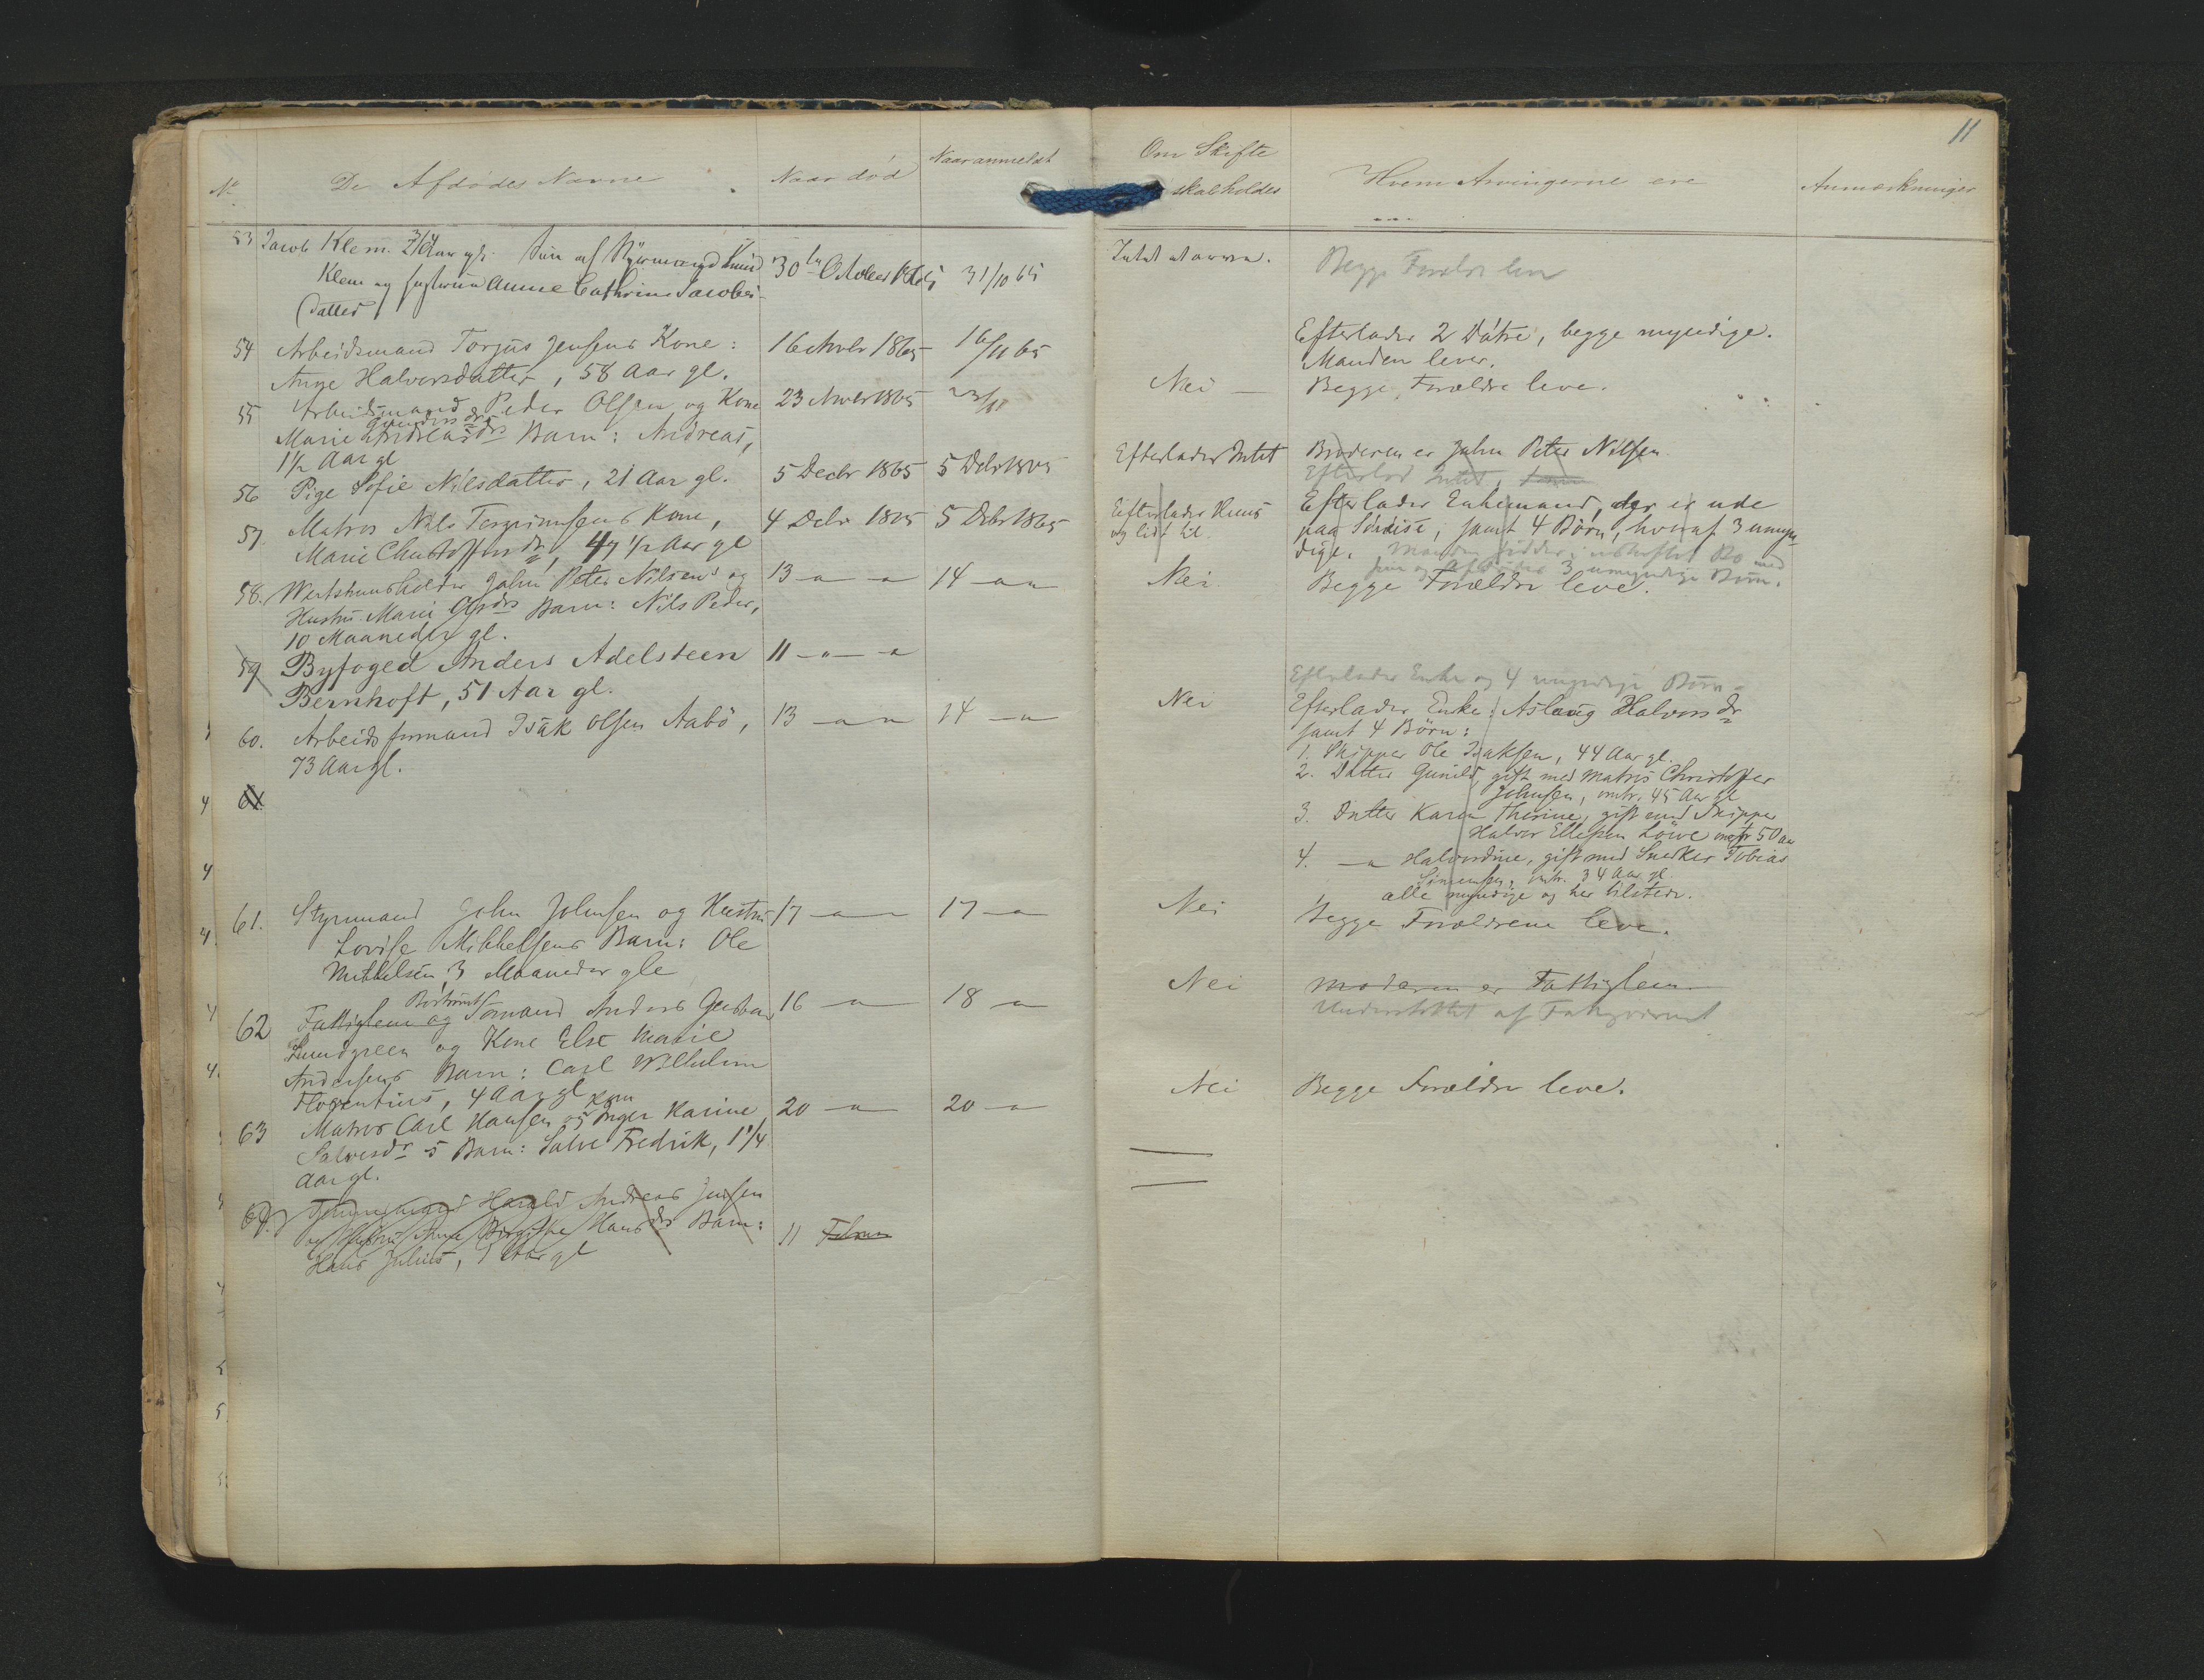 11
No
De Afdødes Navne
Naar død
Naar anmeldt
Om Skifte
skal holdes
Hvem Arvingerne ere
Anmærkninger
53 Jacob Klem. 3/4 Aar gl. Søn af Styrmand Knud
Klem og Hustrue Anne Cathrine Jacobs-
datter
30te October 1865
31/10 65
Intet at arve.
Begge Forældre leve
54 Arbeidsmand Torjus Jensens Kone:
Ange Halvorsdatter, 58 Aar gl.
16 Novbr 1865
16/11 65
Efterlader 2 Døtre, begge myndige.
Manden lever.
55 Arbeidsmand Peder Olsen og Kone
Marie Andreasdrs Barn: Andreas,
1 1/2 Aar gl
23 Novbr 1865
23/11
Nei —
Begge Forældre leve.
56 Pige Sofie Nilsdatter, 21 Aar gl.
5 Decbr 1865
5 Debr 1865
Efterlader Intet
Broderen er John Peter Nilsen
Efterlod Intet,
57 Matros Nils Tergrimsens Kone,
Marie Christoffersdr, 49 1/2 Aar gl
4 Debr 1865
5 Debr 1865
Efterlader Huus
og lidt til.
Efterlader Enkemand, der er ude
paa Søreise, samt 4 Børn, hvoraf 3 umyn-
dige. Manden sidder i uskiftet Bo med
sin og Afdødes 3 umyndige Børn.
58. Vertshuusholder John Peter Nilsens og
Hustru Marie Barn: Nils Peder,
10 Maaneder gl.
13 — " — "
14 — " "
Nei
Begge Forældre leve.
59 Byfoged Anders Adelsteen
Bernhoft, 51 Aar gl.
11 — " — "
Efterlader Enke og 4 umyndige Børn -
60. Arbeidsformand Isak Olsen Aabö,
73 Aar gl.
13 — " "
14 — "
Nei
Efterlader Enke: Aslaug Halvorsdr
samt 4 Börn:
1. Skipper Ole Isaksen, 44 Aar gl.
2. Datter Gunild, gift med Matros Christoffer
Johnsen, omtr. 45 Aar gl
3. Datter Karen Therine, gift med Skipper
Halvor Ellefsen Löwe omtr 50 aar
4. — " Halvordine, gift med Snedker Tobias
Simensen, omtr. 34 Aar gl.
alle myndige og her tilstede.
61
61. Styrmand John Johnsen og Hustru
Lovise Mikkelsens Barn: Ole
Mikkelsen, 3 Maaneder gle
17 — "
17 — "
Nei
Begge Forældrene leve.
62 Fattiglem og Bortrømt Sømand Anders Gustav
Lundgreen og Kone Else Marie
Andersens Barn: Carl Wilhelm
Florentius, 4 Aar gl
16 — "
18 — "
Nei
Moderen er Fattiglem
Understöttet af Fattigvæsenet
63 Matros Carl Hansen og Kone Inger Karine
Salvesdrs Barn: Salve Fredrik, 1 1/4
Aar gl.
20 — "
20 — "
Nei
Begge Forældre leve.
64. Harald Andreas Jensen
og Hustru Anne Birgithe Hansdrs Barn:
Hans Julius, 1 Aar gl
11 Februar